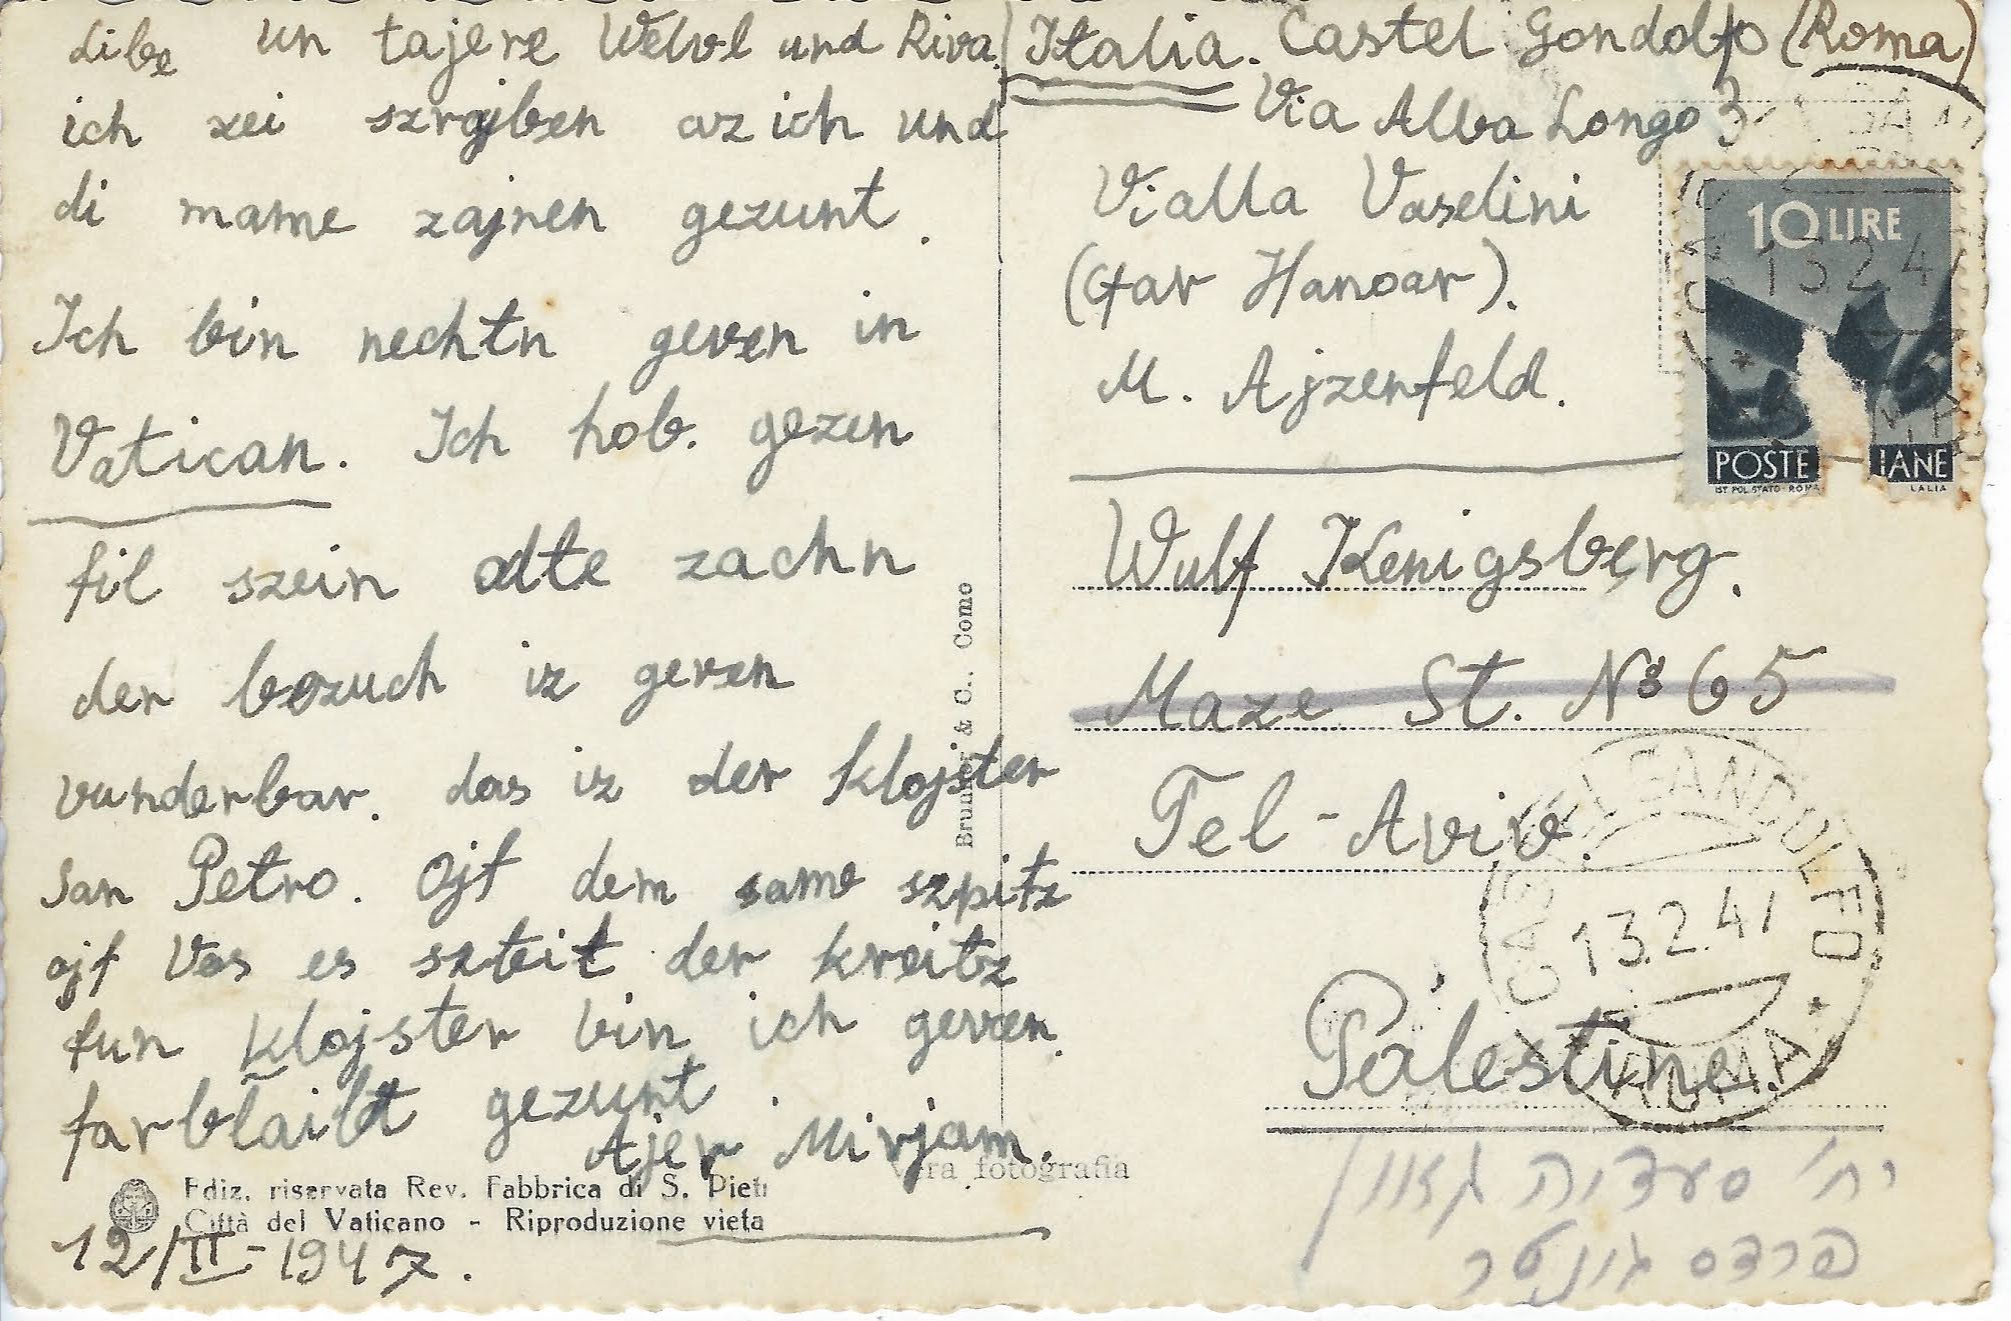 Libe un tajere Welvl und Riva!
ich zei szrajben az ich und
di mame zajnen gezunt.
Ich bin nechtn geven in
Vatican. Ich hob. gezen
fil szein alte zachn
der bezuch iz geven
vunderbar. das iz der klojster
San Petro. Ojf dem same szpitz
ojf Vos es szteit der kreitz
fun klojster bin ich geven
farblaibt gezunt.
Ajer Mirjam.
Ediz. riservata Rev. Fabbrica di S. Piet
Città del Vaticano - Riproduzione vieta
12/II-1947.
Brunner & C., Como
Vera fotografia
Italia. Castel Gondolfo (Roma)
Via Alba Longo 3
Vialla Vaselini
(Gar Hanoar).
M. Ajzenfeld.
10 LIRE
POSTE IANE
IST. POL. STATO-ROMA
13.2.47
Wulf Kenigsberg.
Maze St. № 65
Tel-Aviv.
Palestine.
CASTEL GANDOLFO
13.2.47
ROMA
רח' סעדיה גאון
פרדס גונטר